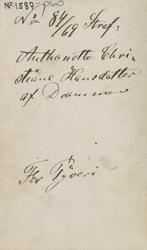 No 1587
No 84/69 Straf.
Anthonette Chri-
stiane Hansdatter
af Drammen
For Tyveri